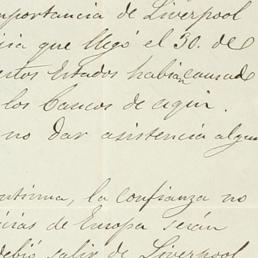 mportancia de Liverpool
que llegó el 30. de
Estados habia causado
los Bancos de aqui.
no dar asistencia algun
la confianza no
cias de Europa serán
debió salir de Liverpool